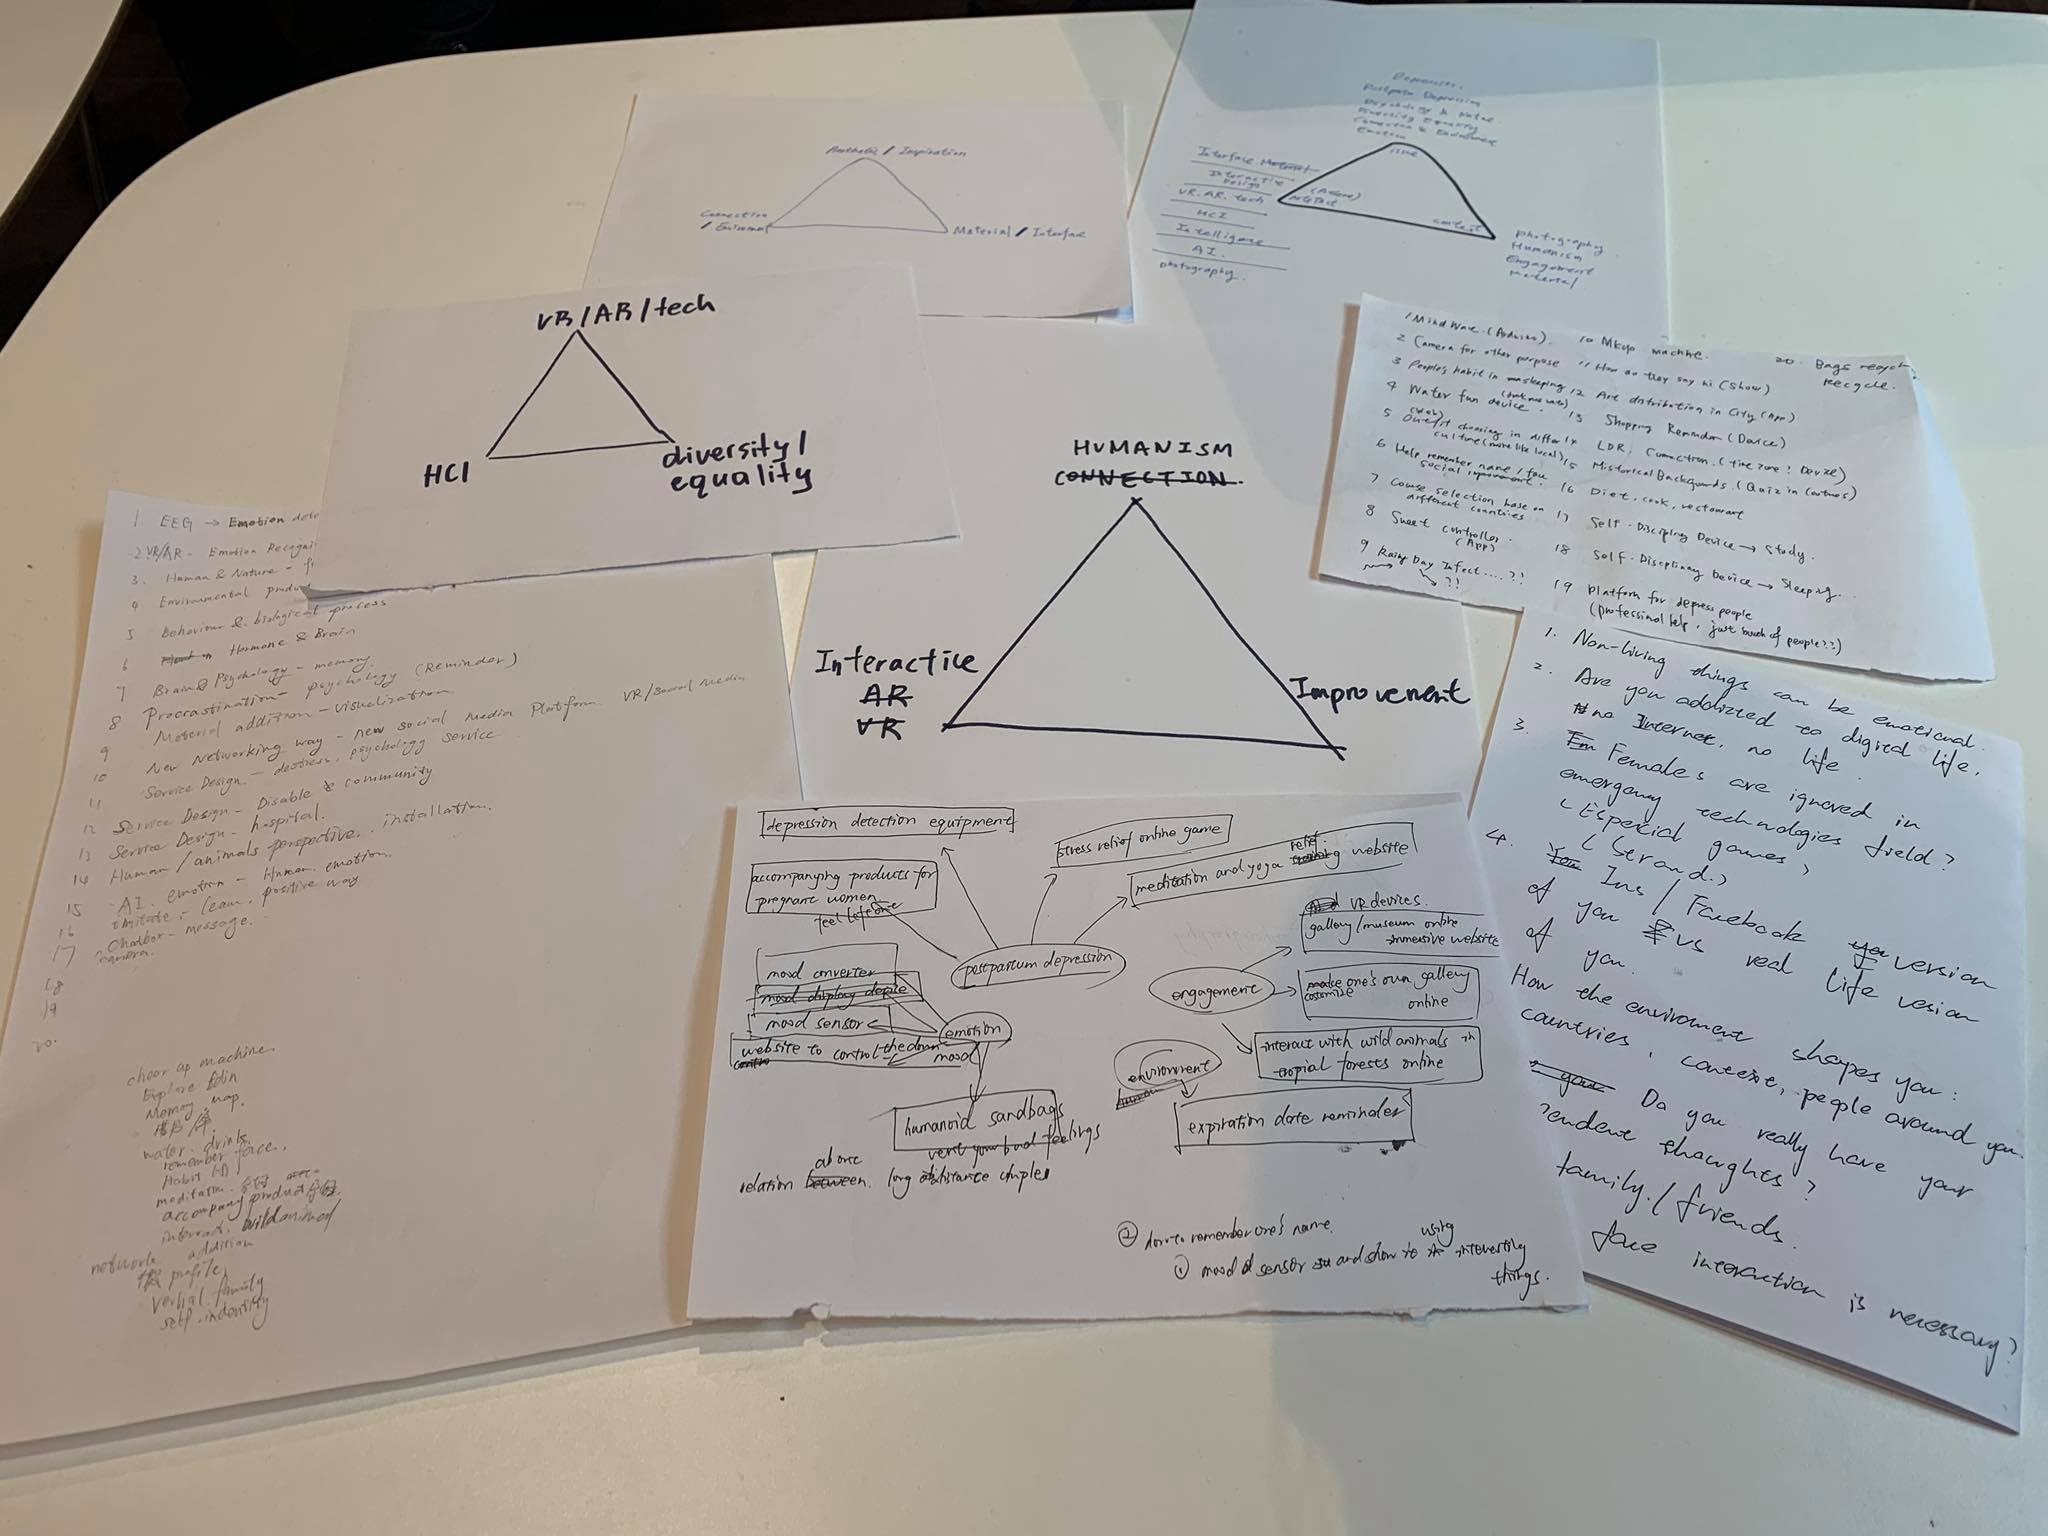 Aesthetic / Inspiration
Connection
/ Enviroment
Material / Interface
Depression.
Postpartum Depression
Psychology &
Diversity Equality
Connection & Environment
Emotion
issue
Interface. Material
Interactive
Design
VR. AR. tech
HCI
Intelligence
AI.
photography.
artefact
context
photography
Humanism
Engagement
Material
VR/AR/tech
HCI
diversity/
equality
HUMANISM
CONNECTION.
Interactive
AR
VR
Improvement
1 Mind Wave. (Arduino).
2 Camera for other purpose
3 people's habit in
4 Water fun device.
5 Outfit choosing in differ
culture (more like local)
6 Help remember name / face
social improvement.
7 Course selection base on
different countries
8 Sweet controller.
(App)
9 Rainy Day Infect....?!
?!
10 Mkup machine.
11 How do they say hi (show)
12 Art distribution in City (App)
13 Shopping Reminder (Device)
14 LDR. Connection. (time zone: Device)
15 Historical Backgrounds. (Quiz in
16 Diet, cook, restaurant
17 Self-Discipling Device → Study.
18 Self-Disciplinary Device → Sleeping.
19 platform for depress people
(professional help, just bunch of people??)
20. Bags recycle
recycle.
1. EEG → Emotion
2. VR/AR - Emotion
3. Human & Nature -
4 Environmental
5 Behaviour & biological process
6 Hormone & Brain
7 Brain & Psychology - memory.
8 Procrastination - psychology (Reminder)
9 Material addition - visualization
10 New Networking way - new social Media Platform VR/Social Media
11 Service Design - destress, psychology service
12 Service Design - Disable & community
13 Service Design - hospital.
14 Human / animals perspective. installation.
15 AI. emotion - Human. emotion.
16 imitate - learn, positive way
17 Chatbot - message.
camera.
18
19
20.
cheer up machine.
Explore Edin
Memory map.
water. drinks.
remember face.
Habit
meditation.
accompany product
interact. wild animal
addition
network
profile
verbal family
self. indentity
depression detection equipment
stress relief online game
relief
meditation and yoga website
accompanying products for
pregnant women
feel
postpartum depression
VR devices.
gallery/museum online
immersive website
engagement
one's own gallery
costomize online
mood converter
mood display device
mood sensor
emotion
website to control the down
mood
interact with wild animals in
tropial forests online
environment
human
expiration date reminder
humanoid sandbags
vent your bad feelings
above
relation between. long distance couples
② how to remember one's name.
using
① mood sensor and show it interesting
things.
1. Non-living things can be emotional.
2. Are you addizted to digital life.
no Internet, no life.
3. Females are ignored in
emergency technologies field?
(Especial games)
(Gerand.)
4. Ins / Facebook version
of you vs real life vesion
of you.
How the enviroment shapes you:
countries, context, people around you.
Do you really have your
thoughts?
family./friends.
face interaction is necessary?